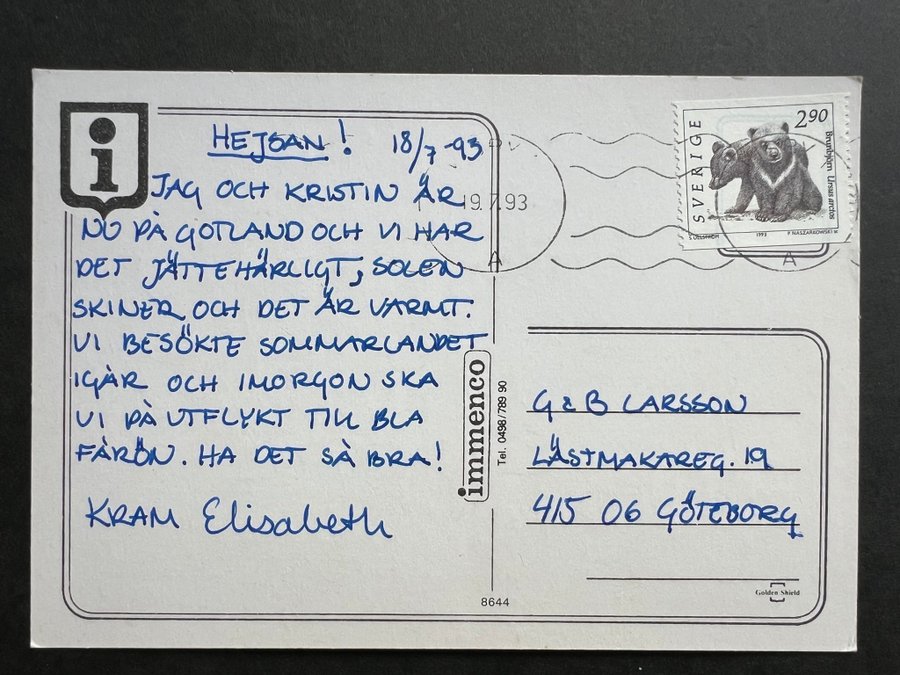 HEJSAN! 18/7-93
JAG OCH KRISTIN ÄR
NU PÅ GOTLAND OCH VI HAR
DET JÄTTEHÄRLIGT, SOLEN
SKINER OCH DET ÄR VARMT.
VI BESÖKTE SOMMARLANDET
IGÅR OCH IMORGON SKA
VI PÅ UTFLYKT TILL BLA
FÅRÖN. HA DET SÅ BRA!
KRAM Elisabeth
i
immenco
Tel. 0498/789 90
8644
19.7.93
A
SVERIGE
2.90
Brunbjörn Ursus arctos
1993
P. NASZARKOWSKI
A
G & B LARSSON
LÄSTMAKAREG. 19
415 06 GÖTEBORG
Golden Shield